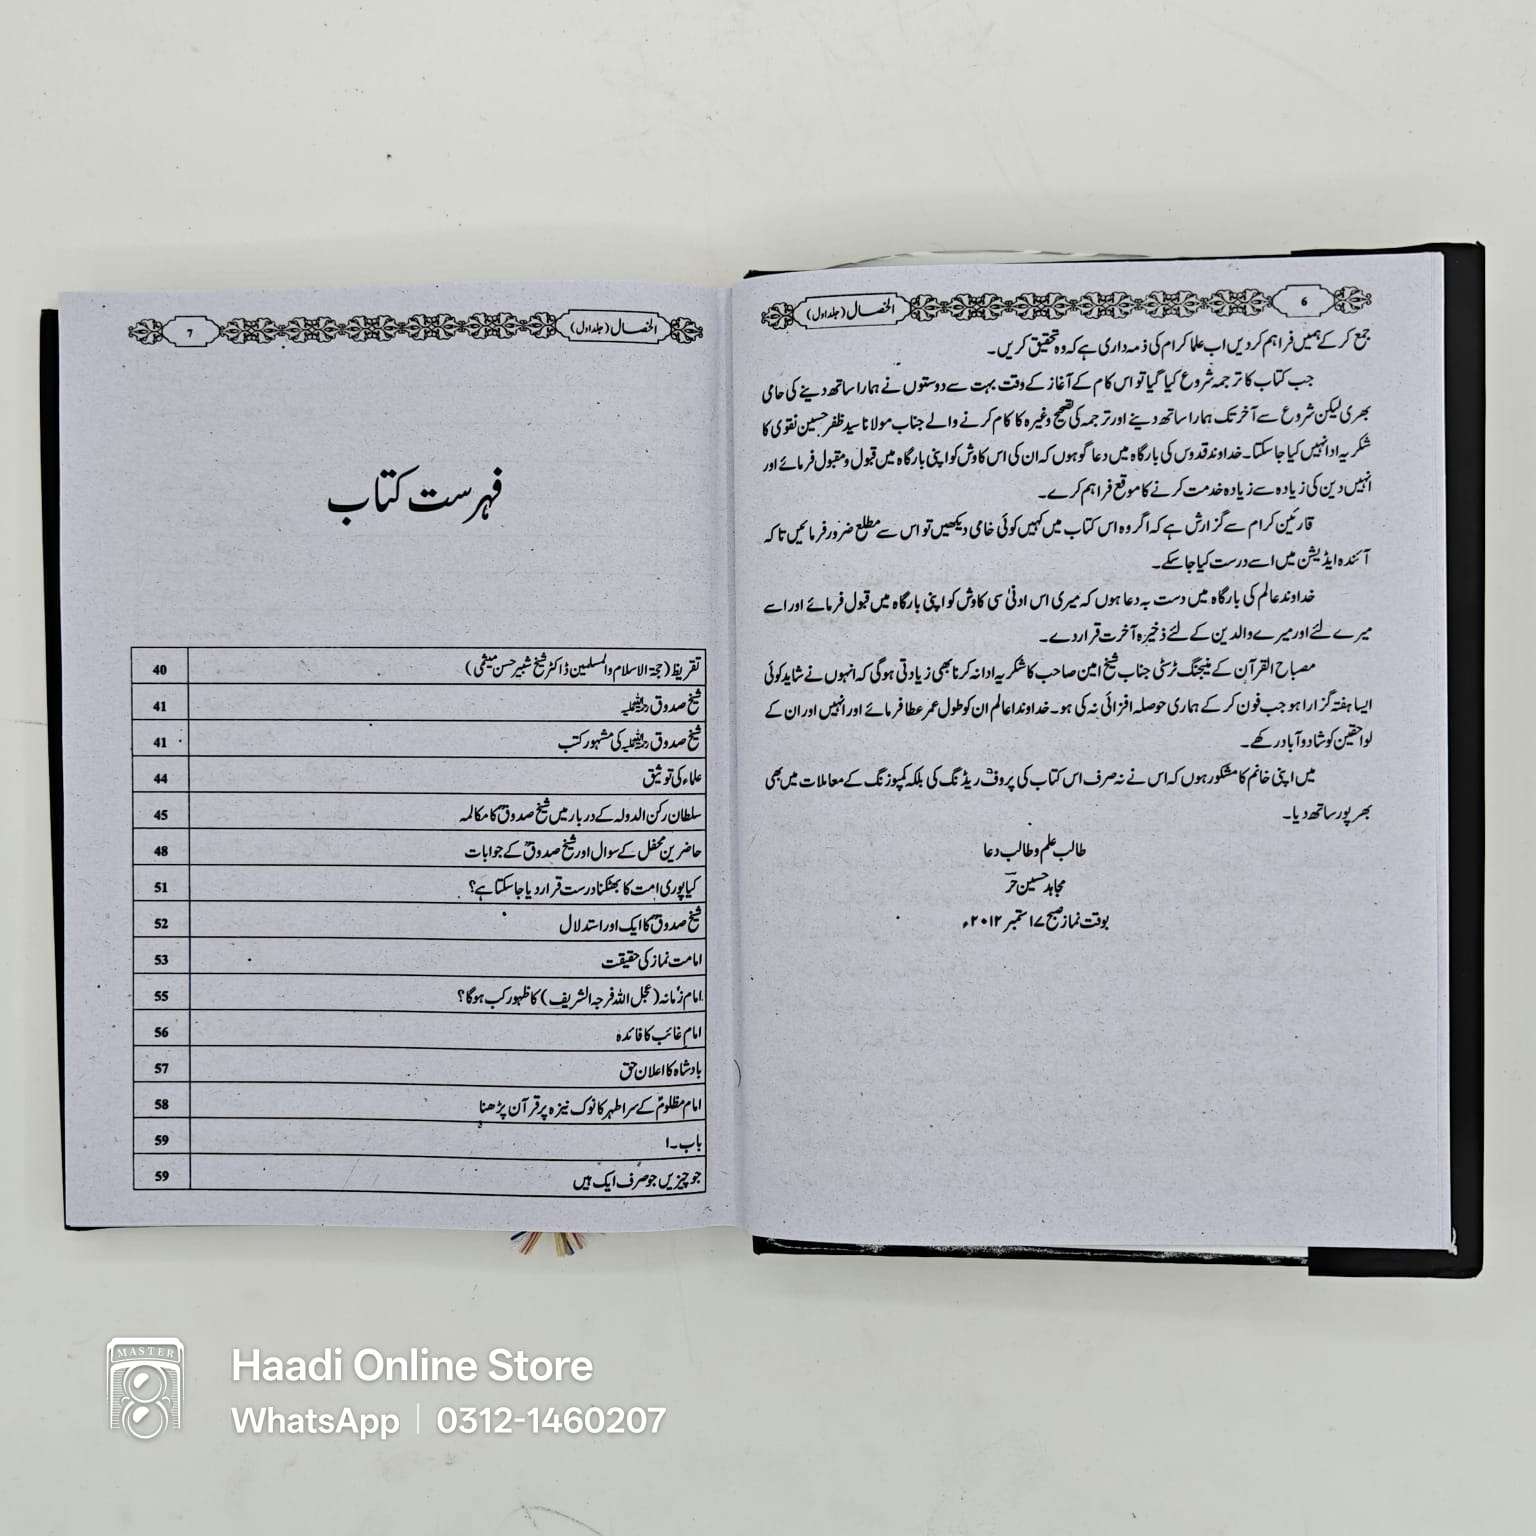 6
الخصال (جلد اول)
جمع کر کے ہمیں فراہم کر دیں اب علما کرام کی ذمہ داری ہے کہ وہ تحقیق کریں۔
جب کتاب کا ترجمہ شروع کیا گیا تو اس کام کے آغاز کے وقت بہت سے دوستوں نے ہمارا ساتھ دینے کی حامی
بھری لیکن شروع سے آخر تک ہمارا ساتھ دینے اور ترجمہ کی تصحیح وغیرہ کا کام کرنے والے جناب مولانا سید ظفر حسین نقوی کا
شکریہ ادا نہیں کیا جا سکتا۔ خداوند قدوس کی بارگاہ میں دعا گو ہوں کہ ان کی اس کاوش کو اپنی بارگاہ میں قبول و مقبول فرمائے اور
انہیں دین کی زیادہ سے زیادہ خدمت کرنے کا موقع فراہم کرے۔
قارئین کرام سے گزارش ہے کہ اگر وہ اس کتاب میں کہیں کوئی خامی دیکھیں تو اس سے مطلع ضرور فرمائیں تا کہ
آئندہ ایڈیشن میں اسے درست کیا جا سکے۔
خداوند عالم کی بارگاہ میں دست بہ دعا ہوں کہ میری اس ادنیٰ سی کاوش کو اپنی بارگاہ میں قبول فرمائے اور اسے
میرے لئے اور میرے والدین کے لئے ذخیرہ آخرت قرار دے۔
مصباح القرآن کے مینجنگ ٹرسٹی جناب شیخ امین صاحب کا شکریہ ادا نہ کرنا بھی زیادتی ہوگی کہ انہوں نے شاید کوئی
ایسا ہفتہ گزارا ہو جب فون کر کے ہماری حوصلہ افزائی نہ کی ہو۔ خداوند عالم ان کو طول عمر عطا فرمائے اور انہیں اور ان کے
لواحقین کو شاد و آباد رکھے۔
میں اپنی خانم کا مشکور ہوں کہ اس نے نہ صرف اس کتاب کی پروف ریڈنگ کی بلکہ کمپوزنگ کے معاملات میں بھی
بھرپور ساتھ دیا۔
طالب علم و طالب دعا
مجاہد حسین حرؔ
بوقت نماز صبح ۱۷ ستمبر ۲۰۱۲ء
الخصال (جلد اول)
7
فہرست کتاب
تقریظ (حجۃ الاسلام والمسلمین ڈاکٹر شیخ شبیر حسن میثمی) 40
شیخ صدوق رحمۃ اللہ علیہ 41
شیخ صدوق رحمۃ اللہ علیہ کی مشہور کتب 41
علماء کی توثیق 44
سلطان رکن الدولہ کے دربار میں شیخ صدوقؒ کا مکالمہ 45
حاضرین محفل کے سوال اور شیخ صدوقؒ کے جوابات 48
کیا پوری امت کا بھٹکنا درست قرار دیا جا سکتا ہے؟ 51
شیخ صدوقؒ کا ایک اور استدلال 52
امامت نماز کی حقیقت 53
امام زمانہ (عجل اللہ فرجہ الشریف) کا ظہور کب ہوگا؟ 55
امام غائب کا فائدہ 56
بادشاہ کا اعلان حق 57
امام مظلومؑ کے سر اطہر کا نوک نیزہ پر قرآن پڑھنا 58
باب ۔۱ 59
جو چیزیں جو صرف ایک ہیں 59
MASTER
Haadi Online Store
WhatsApp | 0312-1460207